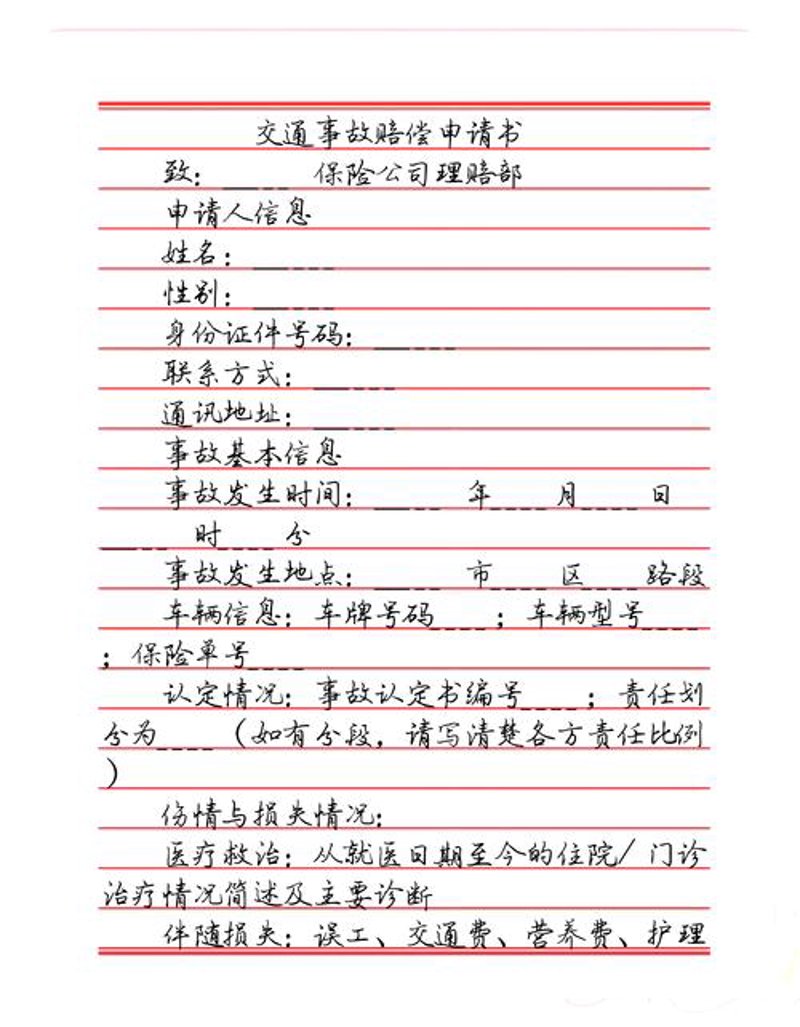 交通事故赔偿申请书
致：____ 保险公司理赔部
申请人信息
姓名：____
性别：____
身份证件号码：____
联系方式：____
通讯地址：____
事故基本信息
事故发生时间：____ 年____ 月____ 日
____ 时____ 分
事故发生地点：____ 市____ 区____ 路段
车辆信息：车牌号码____ ；车辆型号____
；保险单号____
认定情况：事故认定书编号____ ；责任划
分为____ （如有分段，请写清楚各方责任比例
）
伤情与损失情况：
医疗救治：从就医日期至今的住院/门诊
治疗情况简述及主要诊断
伴随损失：误工、交通费、营养费、护理